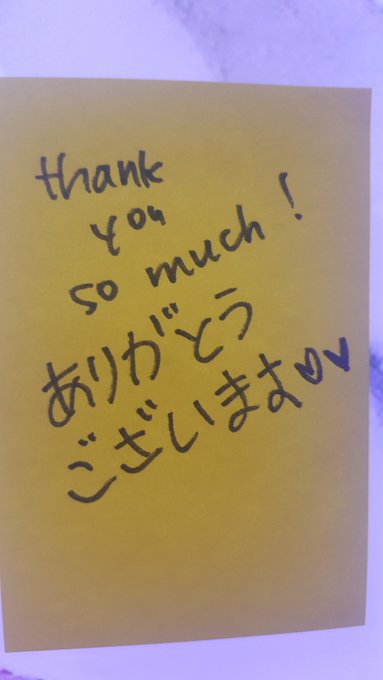 thank
you
so much!
ありがとう
ございます♡♥